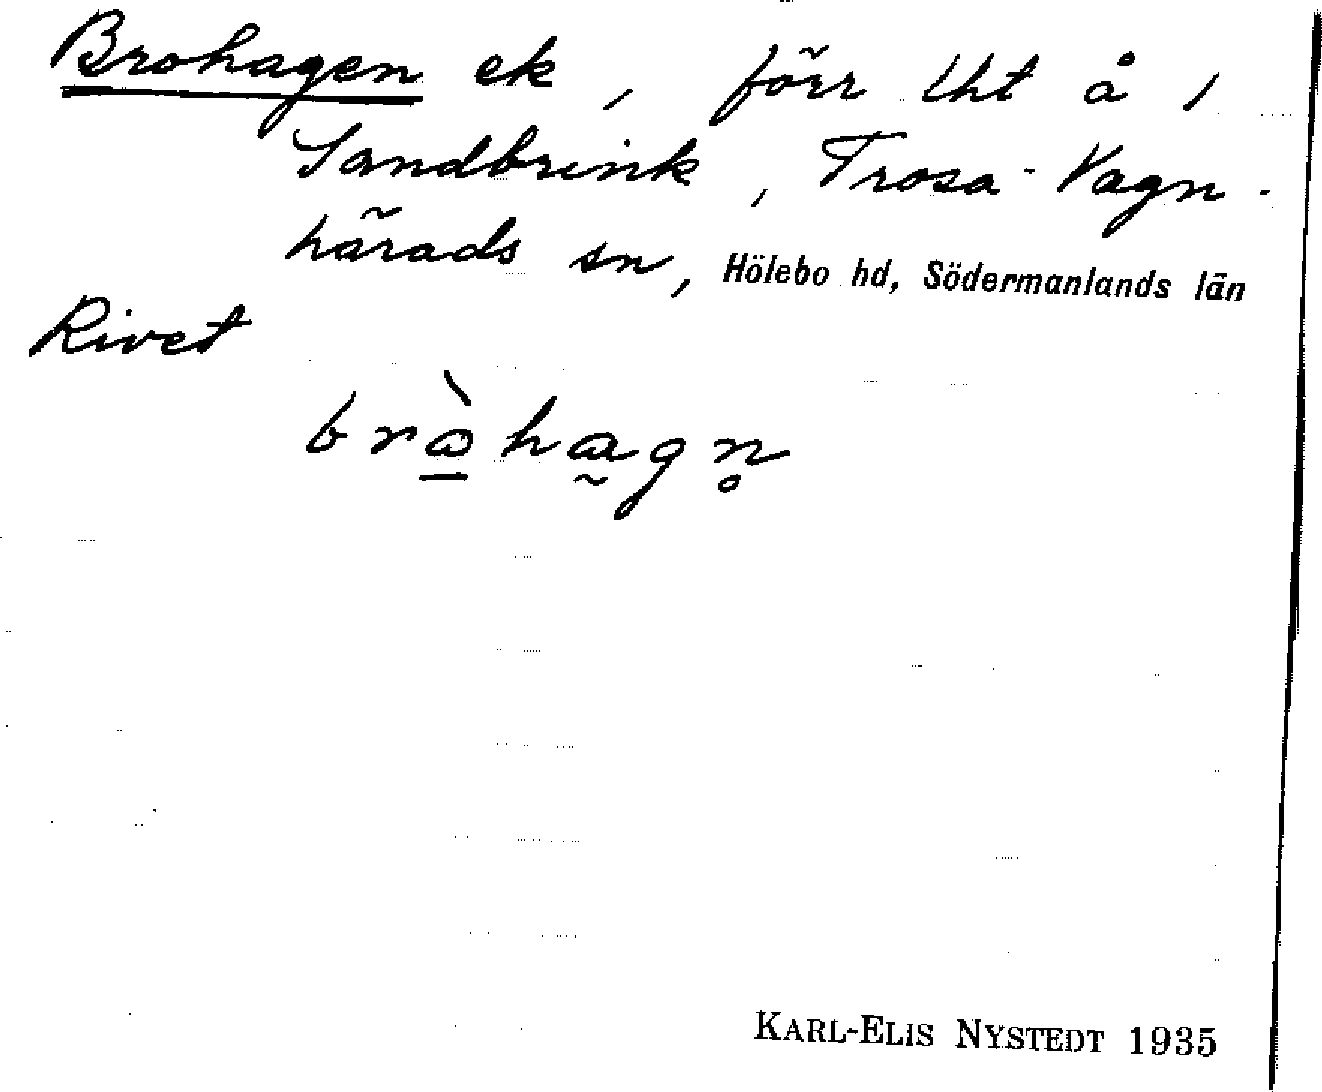 Brohagen ek, förr lht å 1
Sandbrink, Trosa-Vagn-
härads sn, Hölebo hd, Södermanlands län
Rivet
brò̱hagn̥
KARL-ELIS NYSTEDT 1935